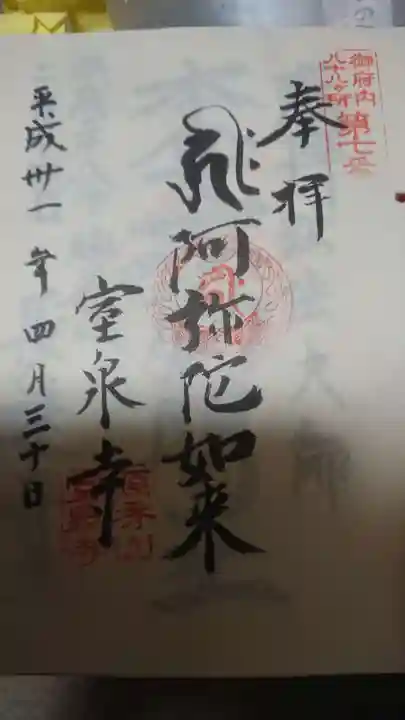 御府内
八十八ヶ所
第七番
奉拝
阿弥陀如来
室泉寺
平成卅一年四月三十日